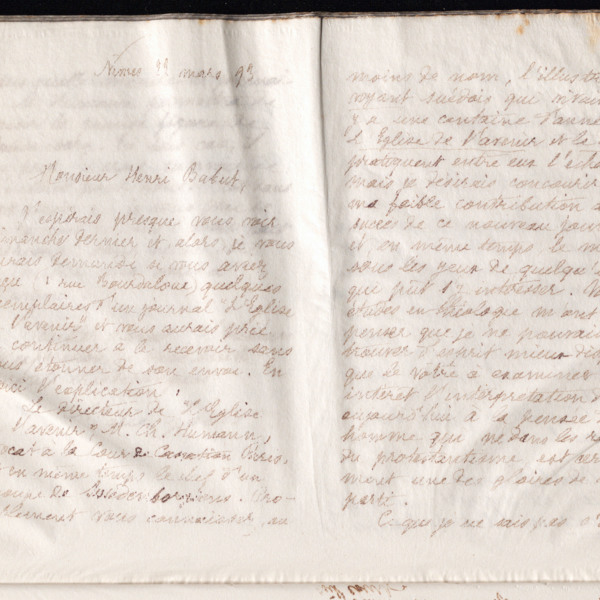 Nîmes 22 mars 93
Monsieur Henri Babut,
J'espérais presque vous voir
imanche dernier et alors, je vous
urais demandé si vous aviez
reçu : rue Bourdaloue quelques
exemplaires d'un journal "L'Eglise
l'avenir et vous aurais prié
continuer à le recevoir sans
ous étonner de son envoi. En
oici l'explication :
Le directeur de L'Eglise
l'avenir M. Ch. Humann,
ocat à la Cour de Paris,
en même temps le chef d'un
oupe de Swedenborgiens. Pro-
blement vous connaissez, au
moins de nom, l'illustr
voyant suédois qui vivai
y a une centaine d'anné
L'Eglise de l'avenir et le
pratiquent entre eux l'écha
mais je désirais concourir
ma faible contribution a
succès de ce nouveau jour
et en même temps le m
sous les yeux de quelqu'
que put s'y intéresser. V
études en théologie m'ont
penser que je ne pouvais
trouver d'esprit mieux dis
que le vôtre à examiner
intérêt l'interprétation d
aujourd'hui à la pensée
homme que né dans les r
du protestantisme est cer
ment une des gloires de
parti.
Ce que je ne sais pas c'